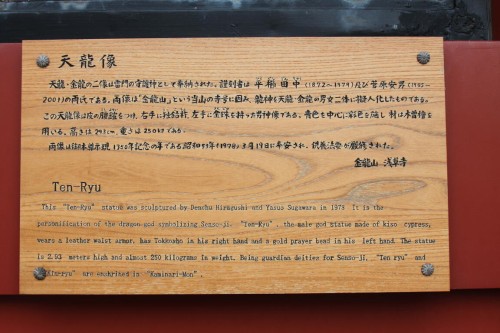 天龍像
天龍・金龍の二像は雷門の守護神として奉納された。彫刻者は 平櫛田中 (1872〜1979) 及び 菅原安男 (1905〜
2001)の両氏である。両像は「金龍山」という当山の寺号に因み、龍神を天龍・金龍の男女二体に擬人化したものである。
この天龍像は皮の腰鎧をつけ、右手に独鈷杵、左手に金珠を持った男神像である。青色を中心に彩色を施し、材は木曽檜を
用いる。高さは293cm、重さは250kgである。
両像は御本尊示現1350年記念の年である昭和53年(1978)3月19日に奉安され、開眼法要が厳修された。
金龍山 浅草寺
Ten-Ryu
This “Ten-Ryu” statue was sculptured by Denchu Hiragushi and Yasuo Sugawara in 1978 It is the
personification of the dragon-god symbolizing Senso-Ji. “Ten-Ryu”, the male god statue made of kiso cypress,
wears a leather waist armor, has Tokkosho in his right hand and a gold prayer bead in his left hand. The statue
is 2.93 meters high and almost 250 kilograms in weight. Being guardian deities for Senso-Ji, “Ten ryu” and
“Kin-ryu” are enshrined in “Kaminari-Mon”.